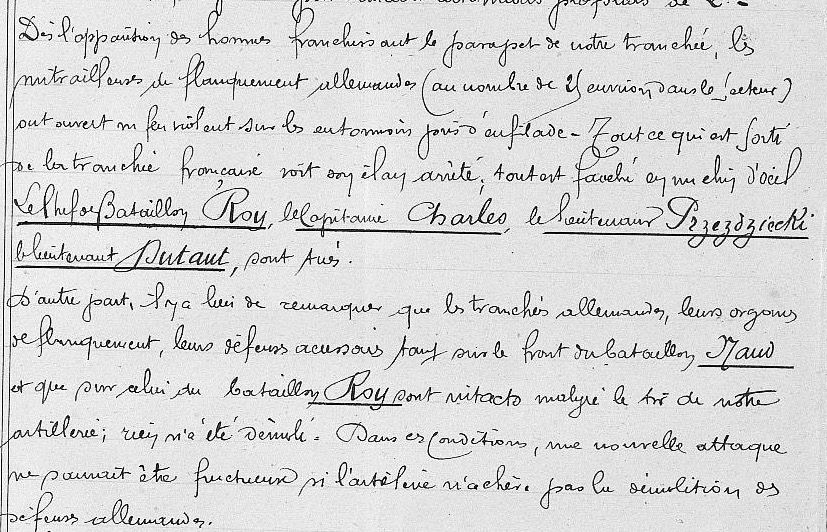 Dès l'apparition des hommes franchissant le parapet de notre tranchée, les
mitrailleuses de flanquement allemandes (au nombre de 25 environ dans le secteur)
ont ouvert un feu violent sur les entonnoirs pris d'enfilade - Tout ce qui est sorti
de la tranchée française voit son élan arrêté; tout est fauché en un clin d'œil
Le Chef de Bataillon Roy, le Capitaine Charles, le Lieutenant Przezdziecki
le Lieutenant Dutaut, sont tués.
D'autre part, il y a lieu de remarquer que les tranchés allemandes, leurs organes
de flanquement, leurs défenses accessoires tant sur le front du bataillon Naud
et que sur celui du bataillon Roy sont intacts malgré le tir de notre
artillerie; rien n'a été démoli. Dans ces Conditions, une nouvelle attaque
ne saurait être fructueuse si l'artillerie n'achève pas la démolition des
défenses allemandes.